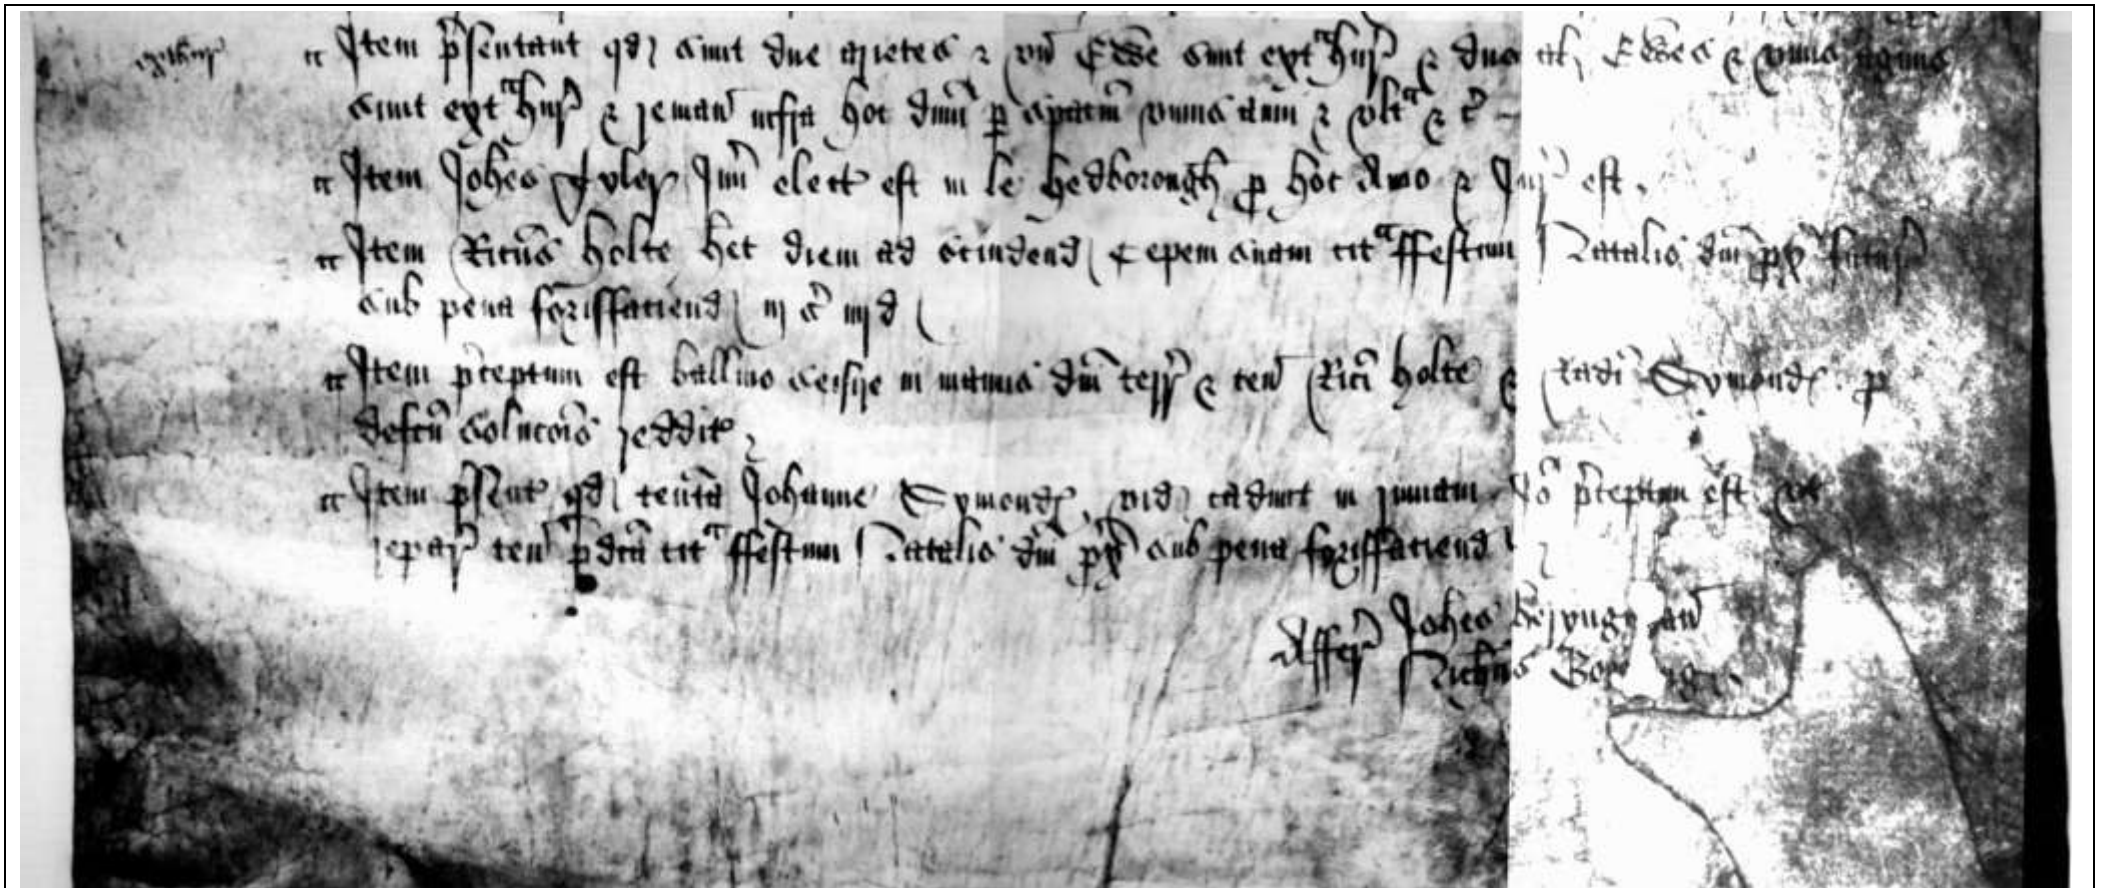 Item p'sentant qd sunt due arietes & un' Ewe sunt extahur' & due al' Ewes & unus agnus
sunt extahur' & reman' infra hoc dnm p spacm unius anni & ulta & c'
Item Johes Fyler Jun' elect' est in le hedborough p hoc Anno & Jur' est
Item Ricus holte het diem ad scindend sepem suam cita ffestum Natalis dni px' futur'
sub pena forisffaciend iij s' iiij d
Item p'ceptum est ballivo seisire in manus dni terr' & ten' Rici holte & Radi Symonds p
defcu solucois reddit'
Item p'sent' qd tenta Johanne Symonds vid cadunt in ruinam Io p'ceptum est
repar' ten' p'dca cita ffestum Natalis dni px' sub pena forisffaciend
Affer' Johes
Nichus